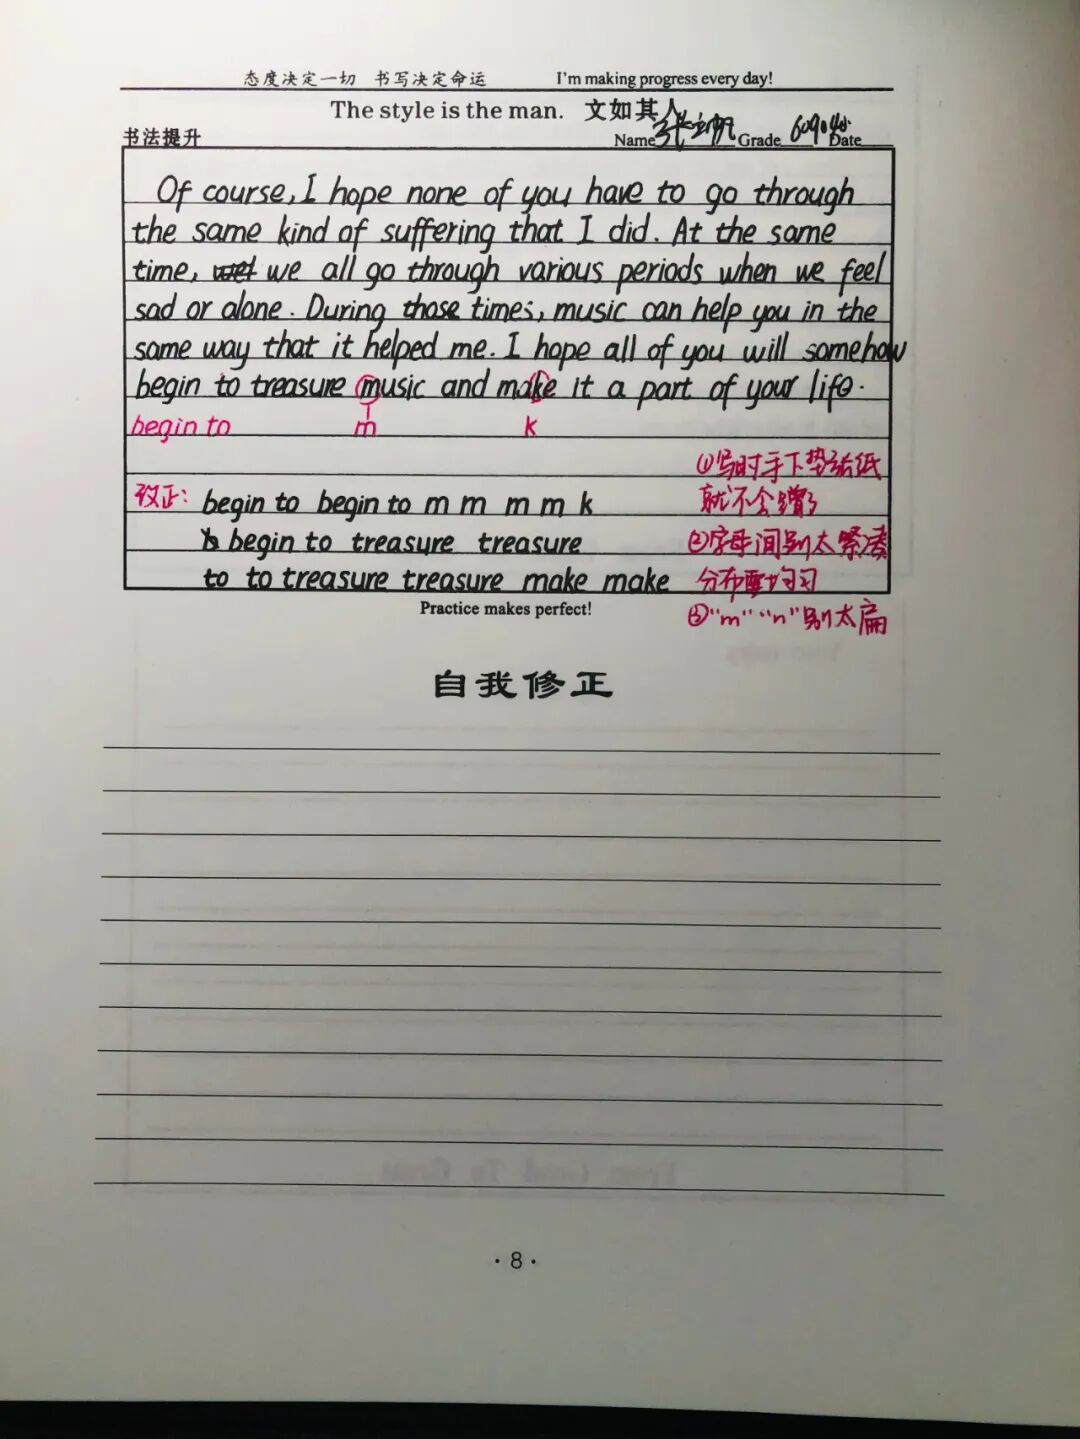 态度决定一切 书写决定命运 I'm making progress every day!
The style is the man. 文如其人
书法提升 Name Grade Date
Of course, I hope none of you have to go through
the same kind of suffering that I did. At the same
time, we all go through various periods when we feel
sad or alone. During those times, music can help you in the
same way that it helped me. I hope all of you will somehow
begin to treasure music and make it a part of your life.
begin to m k
①写时手下垫张纸
就不会蹭了
改正: begin to begin to m m m m k
b begin to treasure treasure
②字母间别太紧凑
to to treasure treasure make make
分布要均匀
Practice makes perfect!
③"m" "n"别太扁
自我修正
·8·